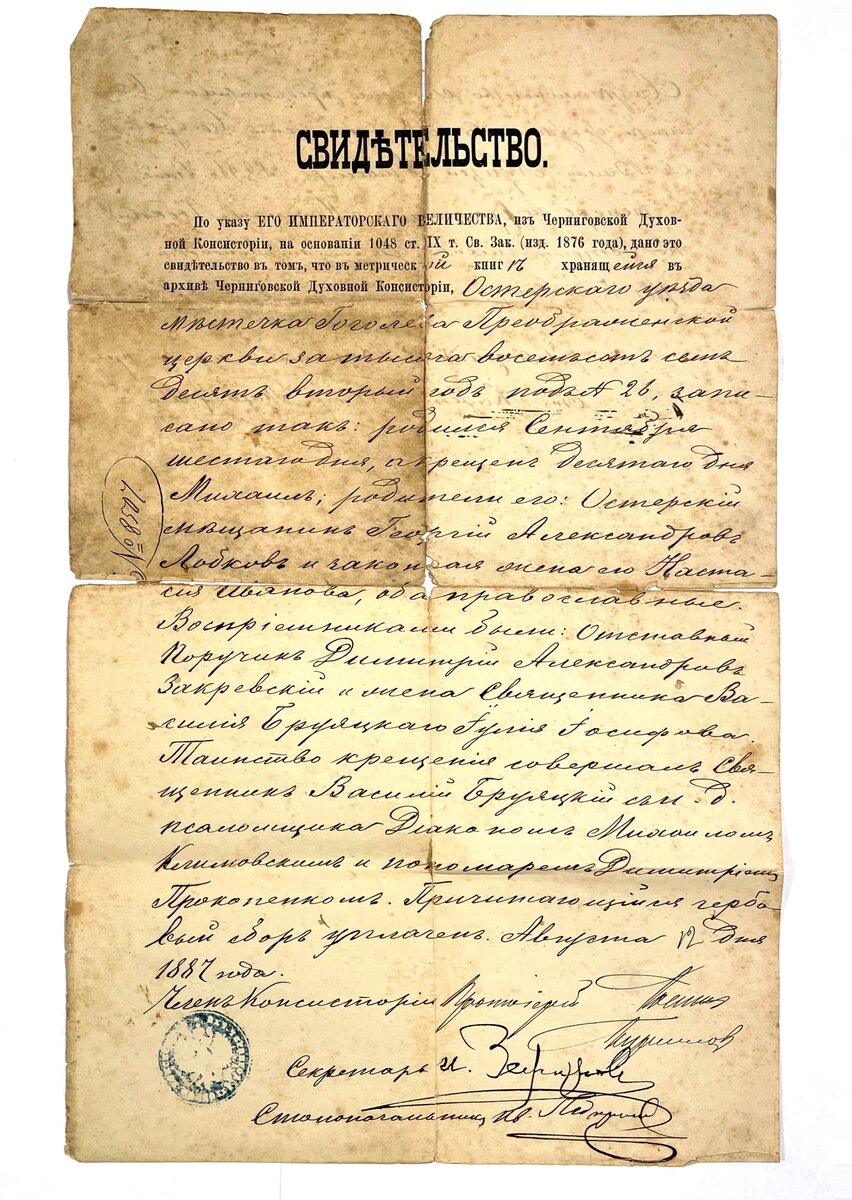 СВИДѢТЕЛЬСТВО.
По указу ЕГО ИМПЕРАТОРСКАГО ВЕЛИЧЕСТВА, изъ Черниговской Духов-
ной Консисторіи, на основаніи 1048 ст. IX т. Св. Зак. (изд. 1876 года), дано это
свидѣтельство въ томъ, что въ метрической книгѣ хранящейся въ
архивѣ Черниговской Духовной Консисторіи, Остерскаго уѣзда
мѣстечка Гоголева Преображенской
церкви за тысяча восемьсотъ семь
десятъ второый годъ подъ № 26, запи-
сано такъ: родился Сентября
шестаго дня, а крещенъ десятаго дня
Михаилъ; родители его: Остерскій
мѣщанинъ Георгій Александровъ
Лобковъ и законная жена его Наста-
сія Иванова, оба православные.
Воспріемниками были: Отставный
Поручикъ Димитрій Александровъ
Закревскій и жена Священника Ва-
силія Бруяцкаго Іулія Іосифова.
Таинство крещенія совершалъ Свя-
щенникъ Василій Бруяцкій съ и. д.
псаломщика Діакономъ Михаиломъ
Климовскимъ и пономаремъ Димитріемъ
Прокопенкомъ. Причитающійся гербо-
вый сборъ уплаченъ. Августа 12 дня
1887 года.
Членъ Консисторіи Протоіерей
Секретарь И.
Столоначальникъ
№ 8507